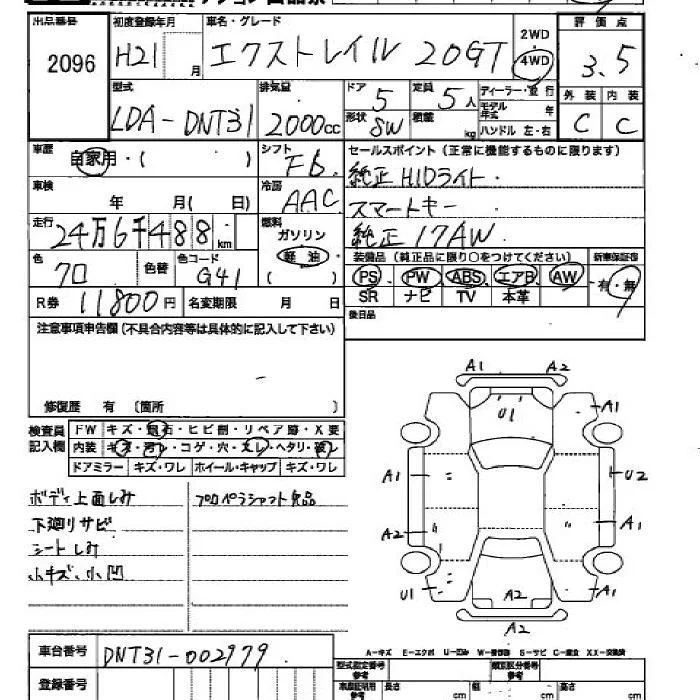 出品番号 初度登録年月 車名・グレード 2WD 評価点
2096 H21 月 エクストレイル 20GT 4WD 3.5
型式 排気量 ドア 5 定員 5人 ディーラー・並行 外装 内装
LDA-DNT31 2000cc 形状 SW 積載 kg モデル年式 年 C C
ハンドル 左・右
車歴 自家用・( ) シフト F6 セールスポイント(正常に機能するものに限ります)
純正HIDライト.
車検 年 月( 日) 冷房 AAC スマートキー
走行 24万6千488km 燃料 ガソリン 純正17AW.
軽油
( )
装備品(純正品に限り○をつけてください) 新車保証書
色 クロ 色替 色コード G41 PS PW ABS エアB AW 有・無
SR ナビ TV 本革
R券 11800円 名変期限 月 日 後日品
注意事項申告欄(不具合内容等は具体的に記入して下さい)
修復歴 有 〔箇所 〕
検査員記入欄 FW キズ・飛石・ヒビ割・リペア跡・X要
内装 キズ・汚レ・コゲ・穴・スレ・ヘタリ・破レ
ドアミラー キズ・ワレ ホイール・キャップ キズ・ワレ
ボディ上面しみ プロペラシャフト欠品
下廻りサビ
シートしみ
小キズ、小凹
A1 A2
U1
A1 A1
A1 U2
A2 A1
U1 A2 A2
A2
車台番号 DNT31-002979
A-キズ E-エクボ U-凹み S-サビ C-腐食 XX-交換済
登録番号 型式指定番号 参考 類別区分番号 参考
長さ cm 幅 cm 高さ cm